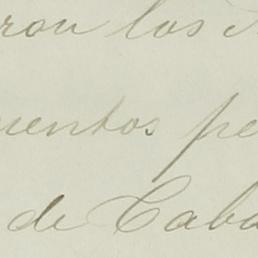 ron los
mentos pe
de Caba